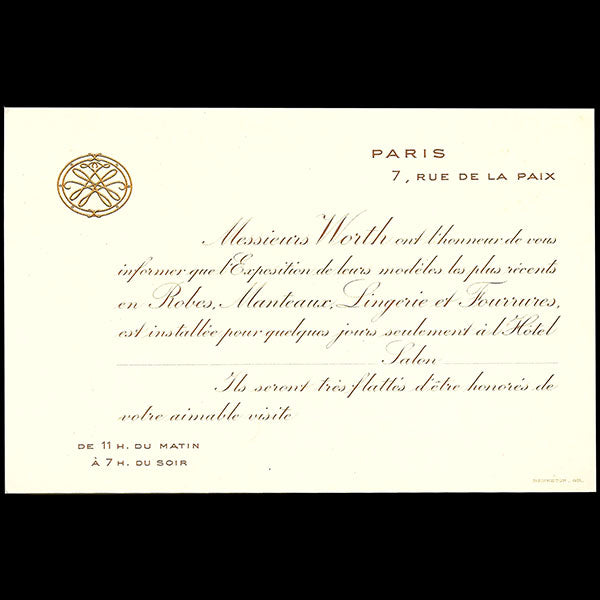 PARIS
7, RUE DE LA PAIX
Messieurs Worth ont l'honneur de vous
informer que l'Exposition de leurs modèles les plus récents
en Robes, Manteaux, Lingerie et Fourrures,
est installée pour quelques jours seulement à l'Hôtel
Salon
Ils seront très flattés d'être honorés de
votre aimable visite
DE 11 H. DU MATIN
À 7 H. DU SOIR